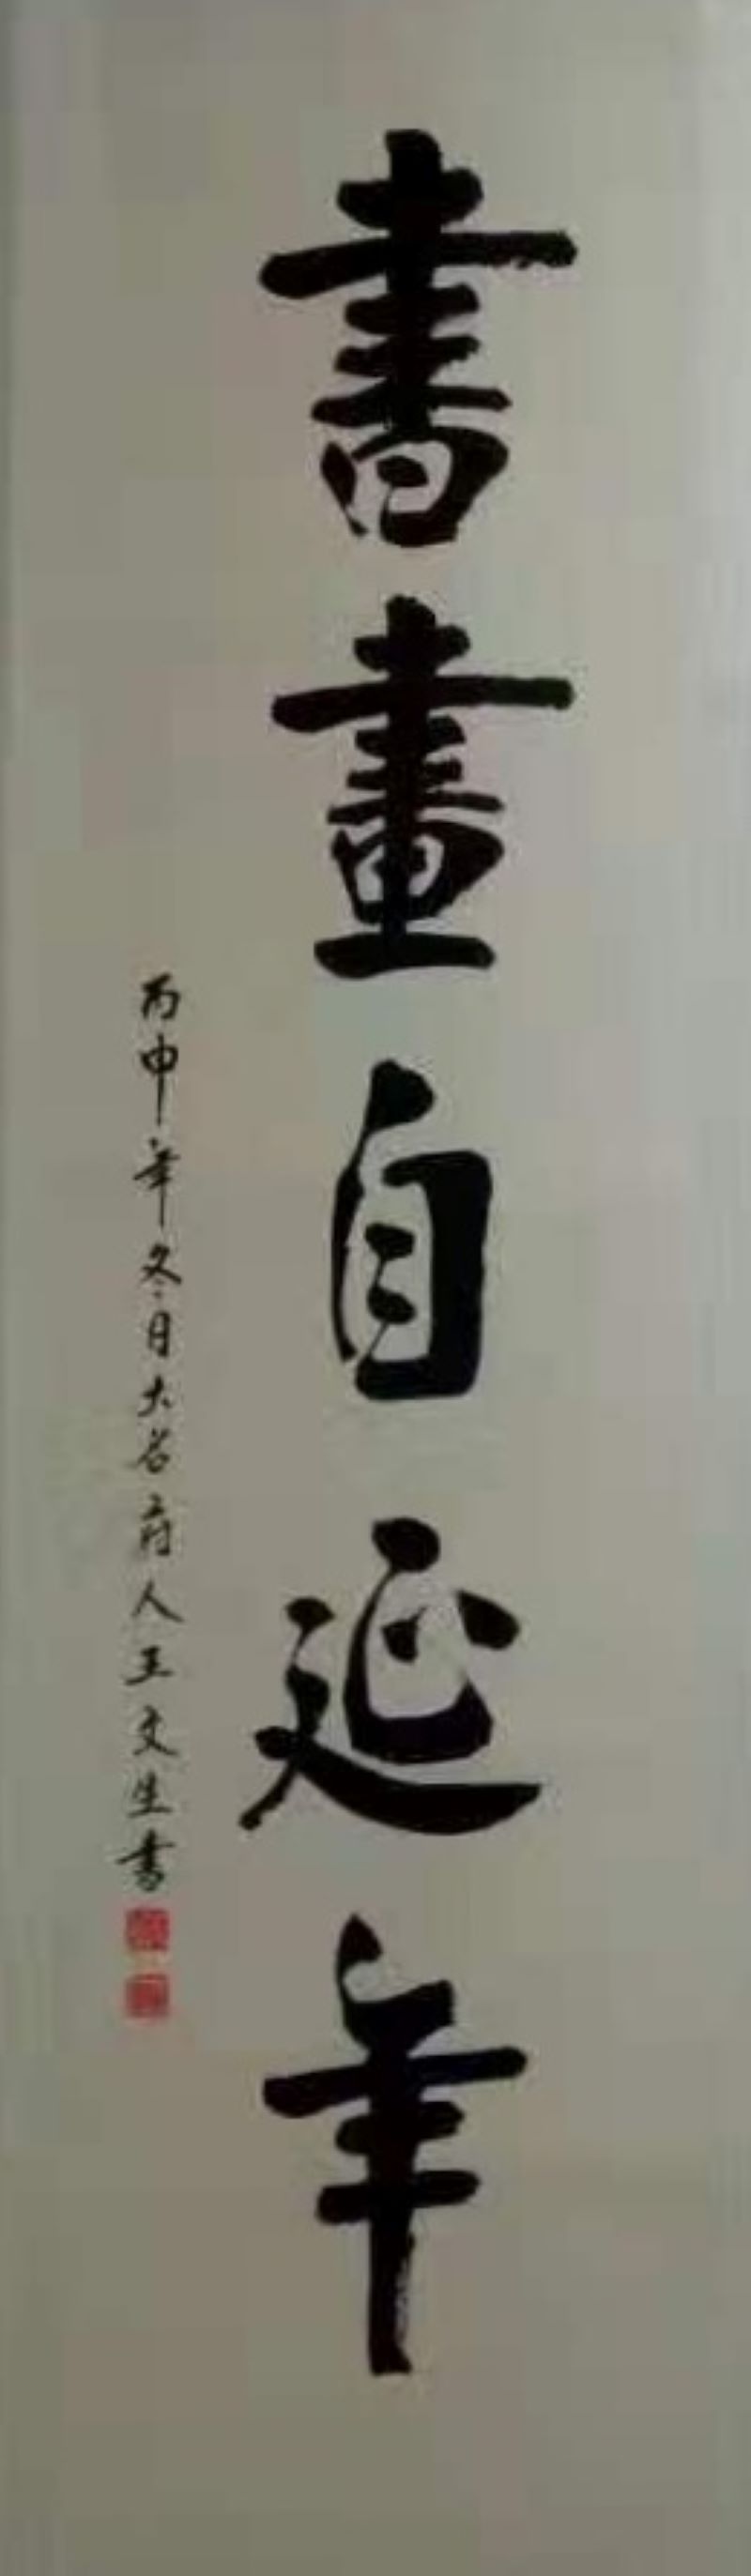 書畫自延年
丙申年冬月大名府人王文生書